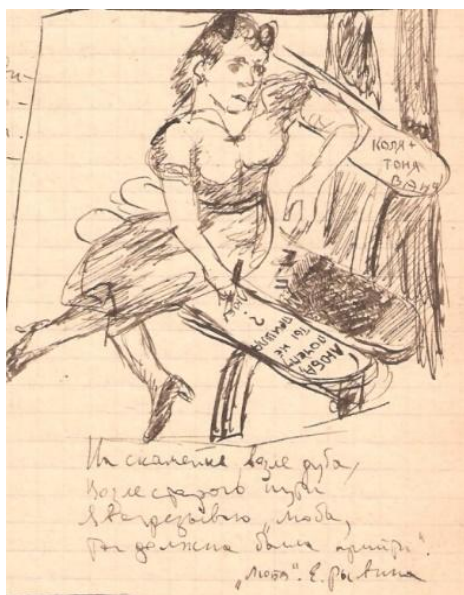 КОЛЯ +
ТОНЯ
ВАНЯ
ЛЮБА,
ПОЧЕМУ
ТЫ НЕ
ПРИШЛА
?
На скамейке возле дуба,
Возле старого пути
Я вырезываю „Люба,
ты должна была прийти".
„Люба". Е. Рывина